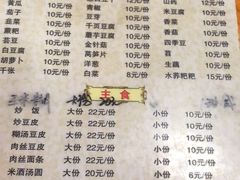 黄瓜 10元/份 千叶豆腐 10元/份 山药 10元/份
茄子 10元/份 冻豆腐 10元/份
豆芽 10元/份 香菜 10元/份 青菜 10元/份
蕨粑 10元/份 老豆腐 10元/份 香菇 10元/份
茶干 10元/份 金针菇 10元/份 四季豆 10元/份
白豆腐 10元/份 莴笋片 10元/份 苕 10元/份
胡萝卜 10元/份 洋葱 10元/份 生藕 10元/份
千张 10元/份 白菜 8元/份 水苏粑粑 10元/份
主食
炒饭 大份 22元/份 小份 10元/份
炒豆皮 大份 22元/份 小份 10元/份
糊汤豆皮 大份 22元/份 小份 10元/份
肉丝豆皮 大份 22元/份 小份 10元/份
肉丝面条 大份 22元/份 小份 10元/份
米酒汤圆 大份 20元/份 小份 6元/份